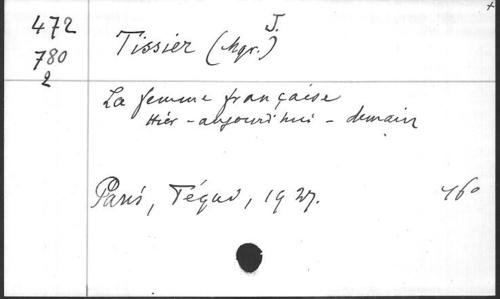 472
780
2
Tissier (Mgr.) J.
La femme française
Hier - aujourd'hui - demain
Paris, Téqui, 1927.
160